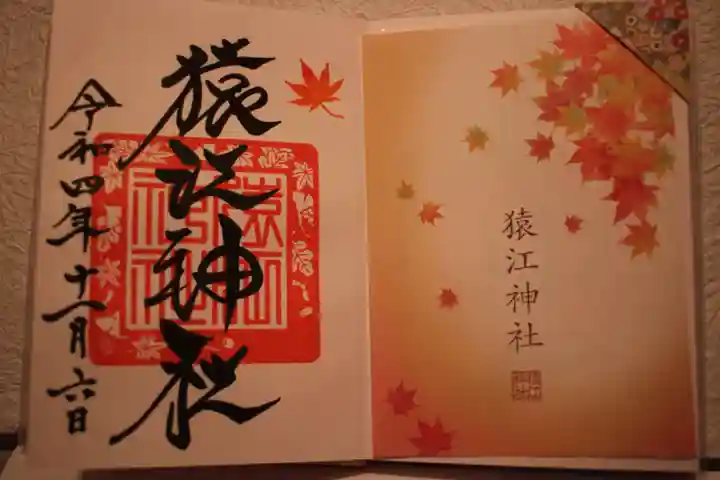 猿江神社
令和四年十一月六日
猿江神社